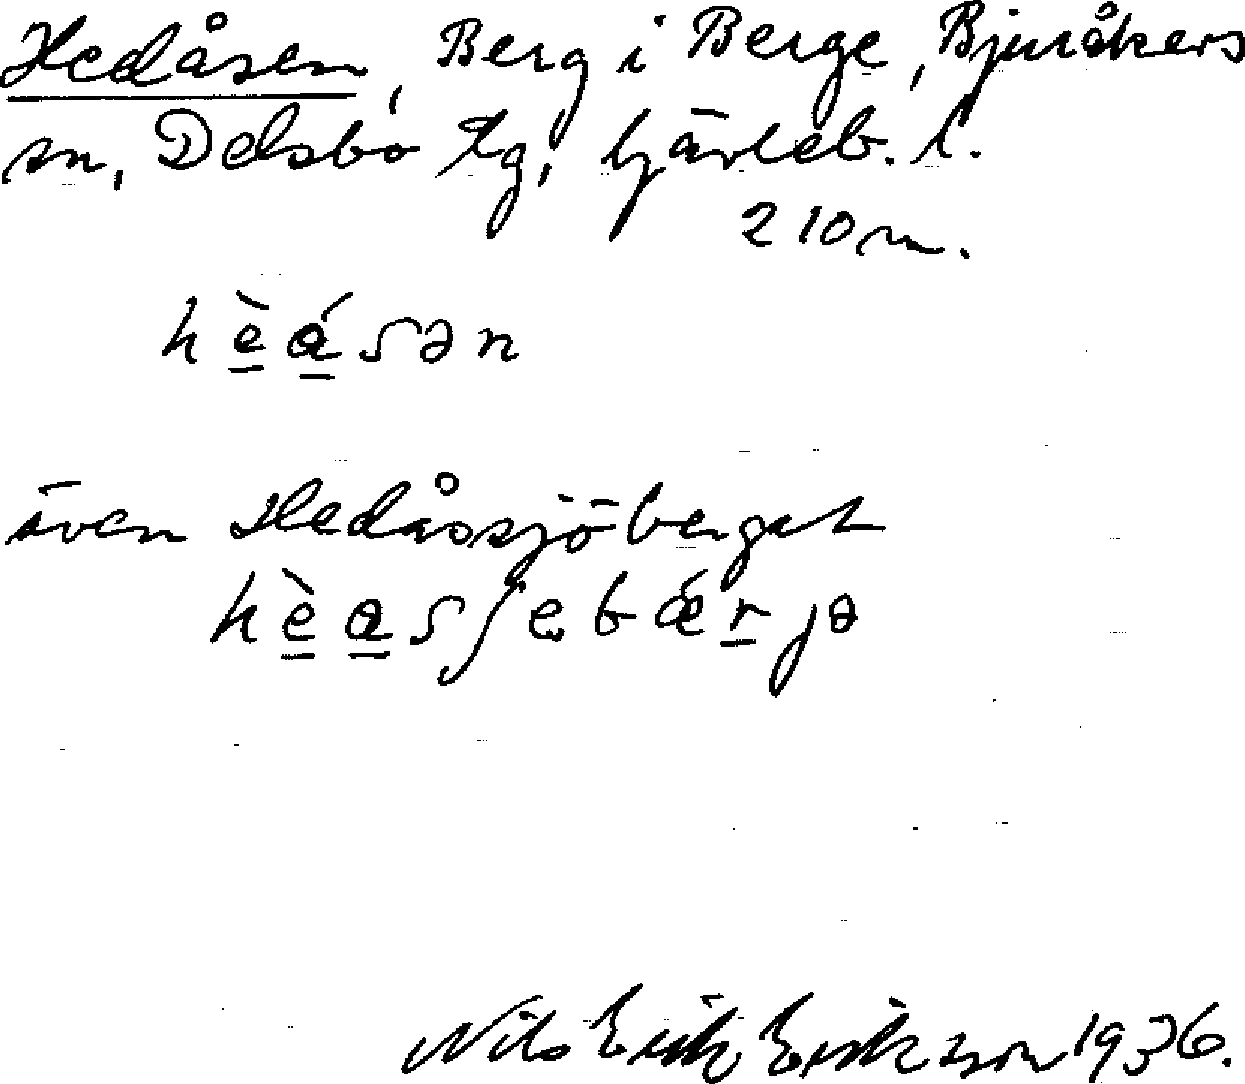 Hedåsen, Berg i Berge, Bjuråkers
sn, Delsbo tg, Gävleb. l.
210 m.
hèásən
även Hedåssjöberget
hèasʃebǽrjə
Nils Erik Erikson 1936.